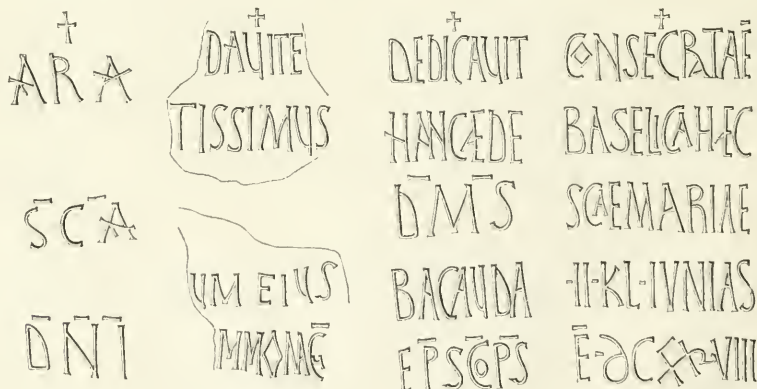 ✝
ARA
S̄C̄Ā
D̄N̄Ī
✝
DAUITE
TISSIMUS
UM EIUS
MMONAḠ
✝
DEDICAUIT
HANCÆDE
D̄M̄S
BACAUDA
EP̄SC̄OP̄S
✝
CONSECRATAĒ
BASELICAHÆC
SCAEMARIAE
·II·KL·IVNIAS
Ē·